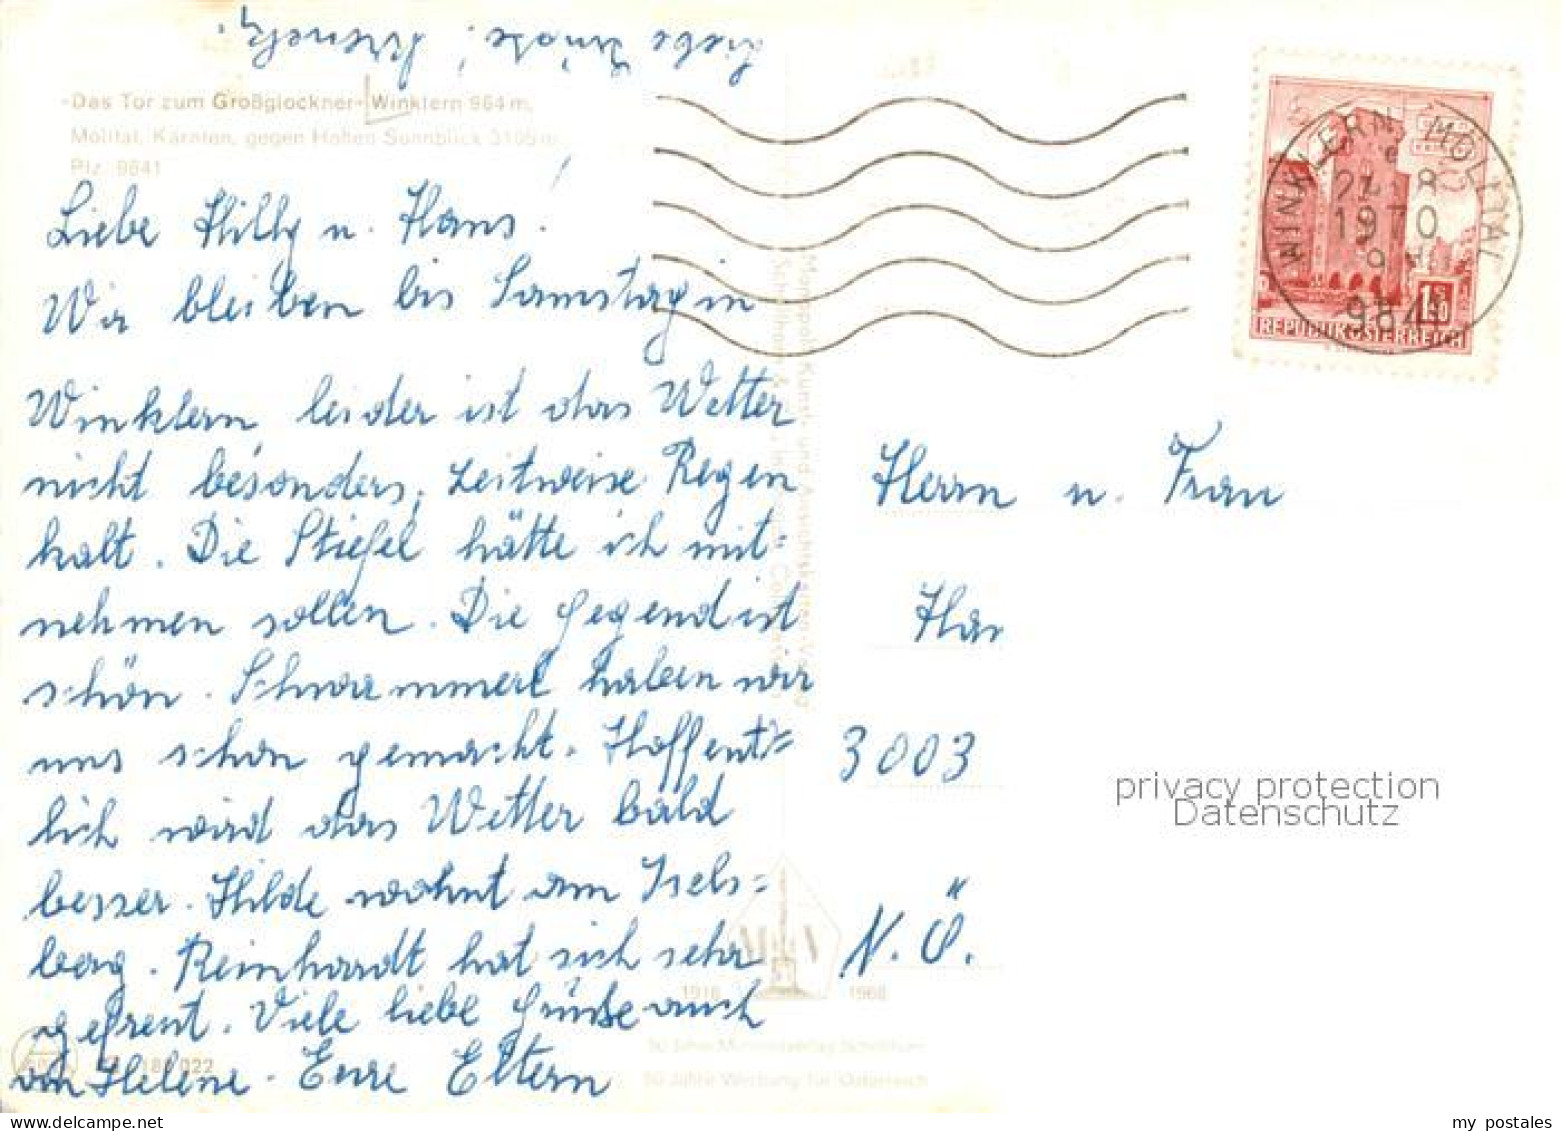 Liebe Grüße!
"Das Tor zum Großglockner" Winklern 964 m,
Mölltal, Kärnten, gegen Hohen Sonnblick 3105 m
Plz. 9841
Liebe Hilly u. Hans!
Wir bleiben bis Samstag in
Winklern, leider ist das Wetter
nicht besonders, zeitweise Regen
kalt. Die Stiefel hätte ich mit-
nehmen sollen. Die Gegend ist
schön. Schwammerl haben wir
uns schon gemacht. Hoffent-
lich wird das Wetter bald
besser. Hilde wohnt am Isels-
berg. Reinhardt hat sich sehr
gefreut. Viele liebe Grüße auch
von Helene. Eure Eltern
WINKLERN, MÖLLTAL
8
1970
9
9841
1.50
REPUBLIK ÖSTERREICH
Herrn u. Frau
Har
3003
N.Ö.
1918 1968
50 Jahre Werbung für Österreich
privacy protection
Datenschutz
my postales